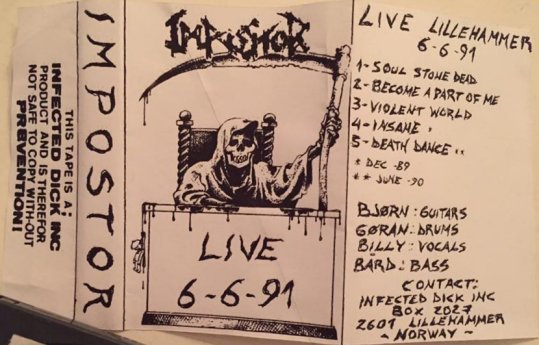 THIS TAPE IS A;
INFECTED DICK INC
PRODUCT AND IS THERFOR
NOT SAFE TO COPY WITH-OUT
PREVENTION!
IMPOSTOR
IMPOSTOR
LIVE
6-6-91
LIVE LILLEHAMMER
6-6-91
1- SOUL STONE DEAD
2- BECOME A PART OF ME
3- VIOLENT WORLD
4- INSANE *
5- DEATH DANCE **
* DEC -89
** JUNE -90
BJØRN: GUITARS
GØRAN: DRUMS
BILLY: VOCALS
BÅRD: BASS
CONTACT:
INFECTED DICK INC
BOX 2027
2601 LILLEHAMMER
~ NORWAY ~